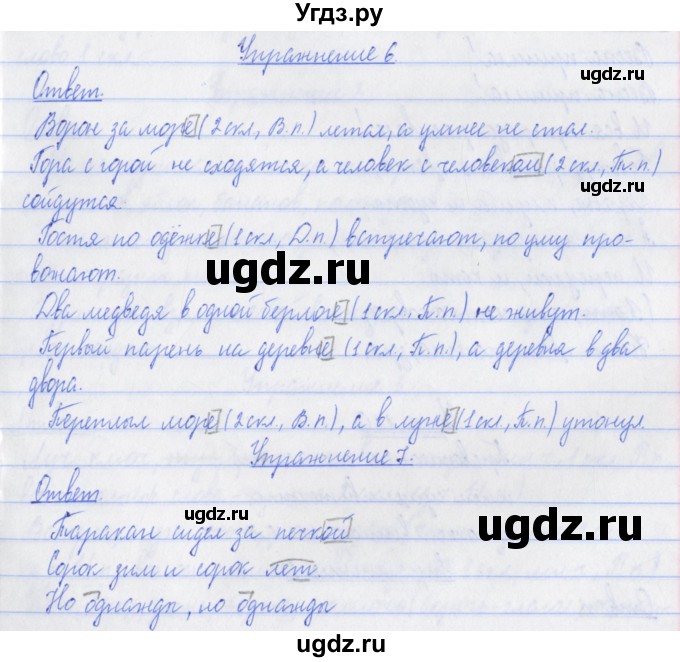 Угдз.ру
Упражнение 6
ugdz.ru
Ответ.
Ворон за море (2 скл., В.п.) летал, а умнее не стал.
ugdz.ru
Гора с горой не сходятся, а человек с человеком (2 скл., Т.п.)
сойдутся.
Гостя по одёжке (1 скл., Д.п.) встречают, по уму про-
вожают.
ugdz.ru
Два медведя в одной берлоге (1 скл., П.п.) не живут.
Первый парень на деревне (1 скл., П.п.), а деревня в два
двора.
Переплыл море (2 скл., В.п.), а в луже (1 скл., П.п.) утонул.
Упражнение 7.
Ответ.
ugdz.ru
ugdz.ru
Таракан сидел за печкой
Сорок зим и сорок лет
Но однажды, но однажды
ugdz.ru
ugdz.ru